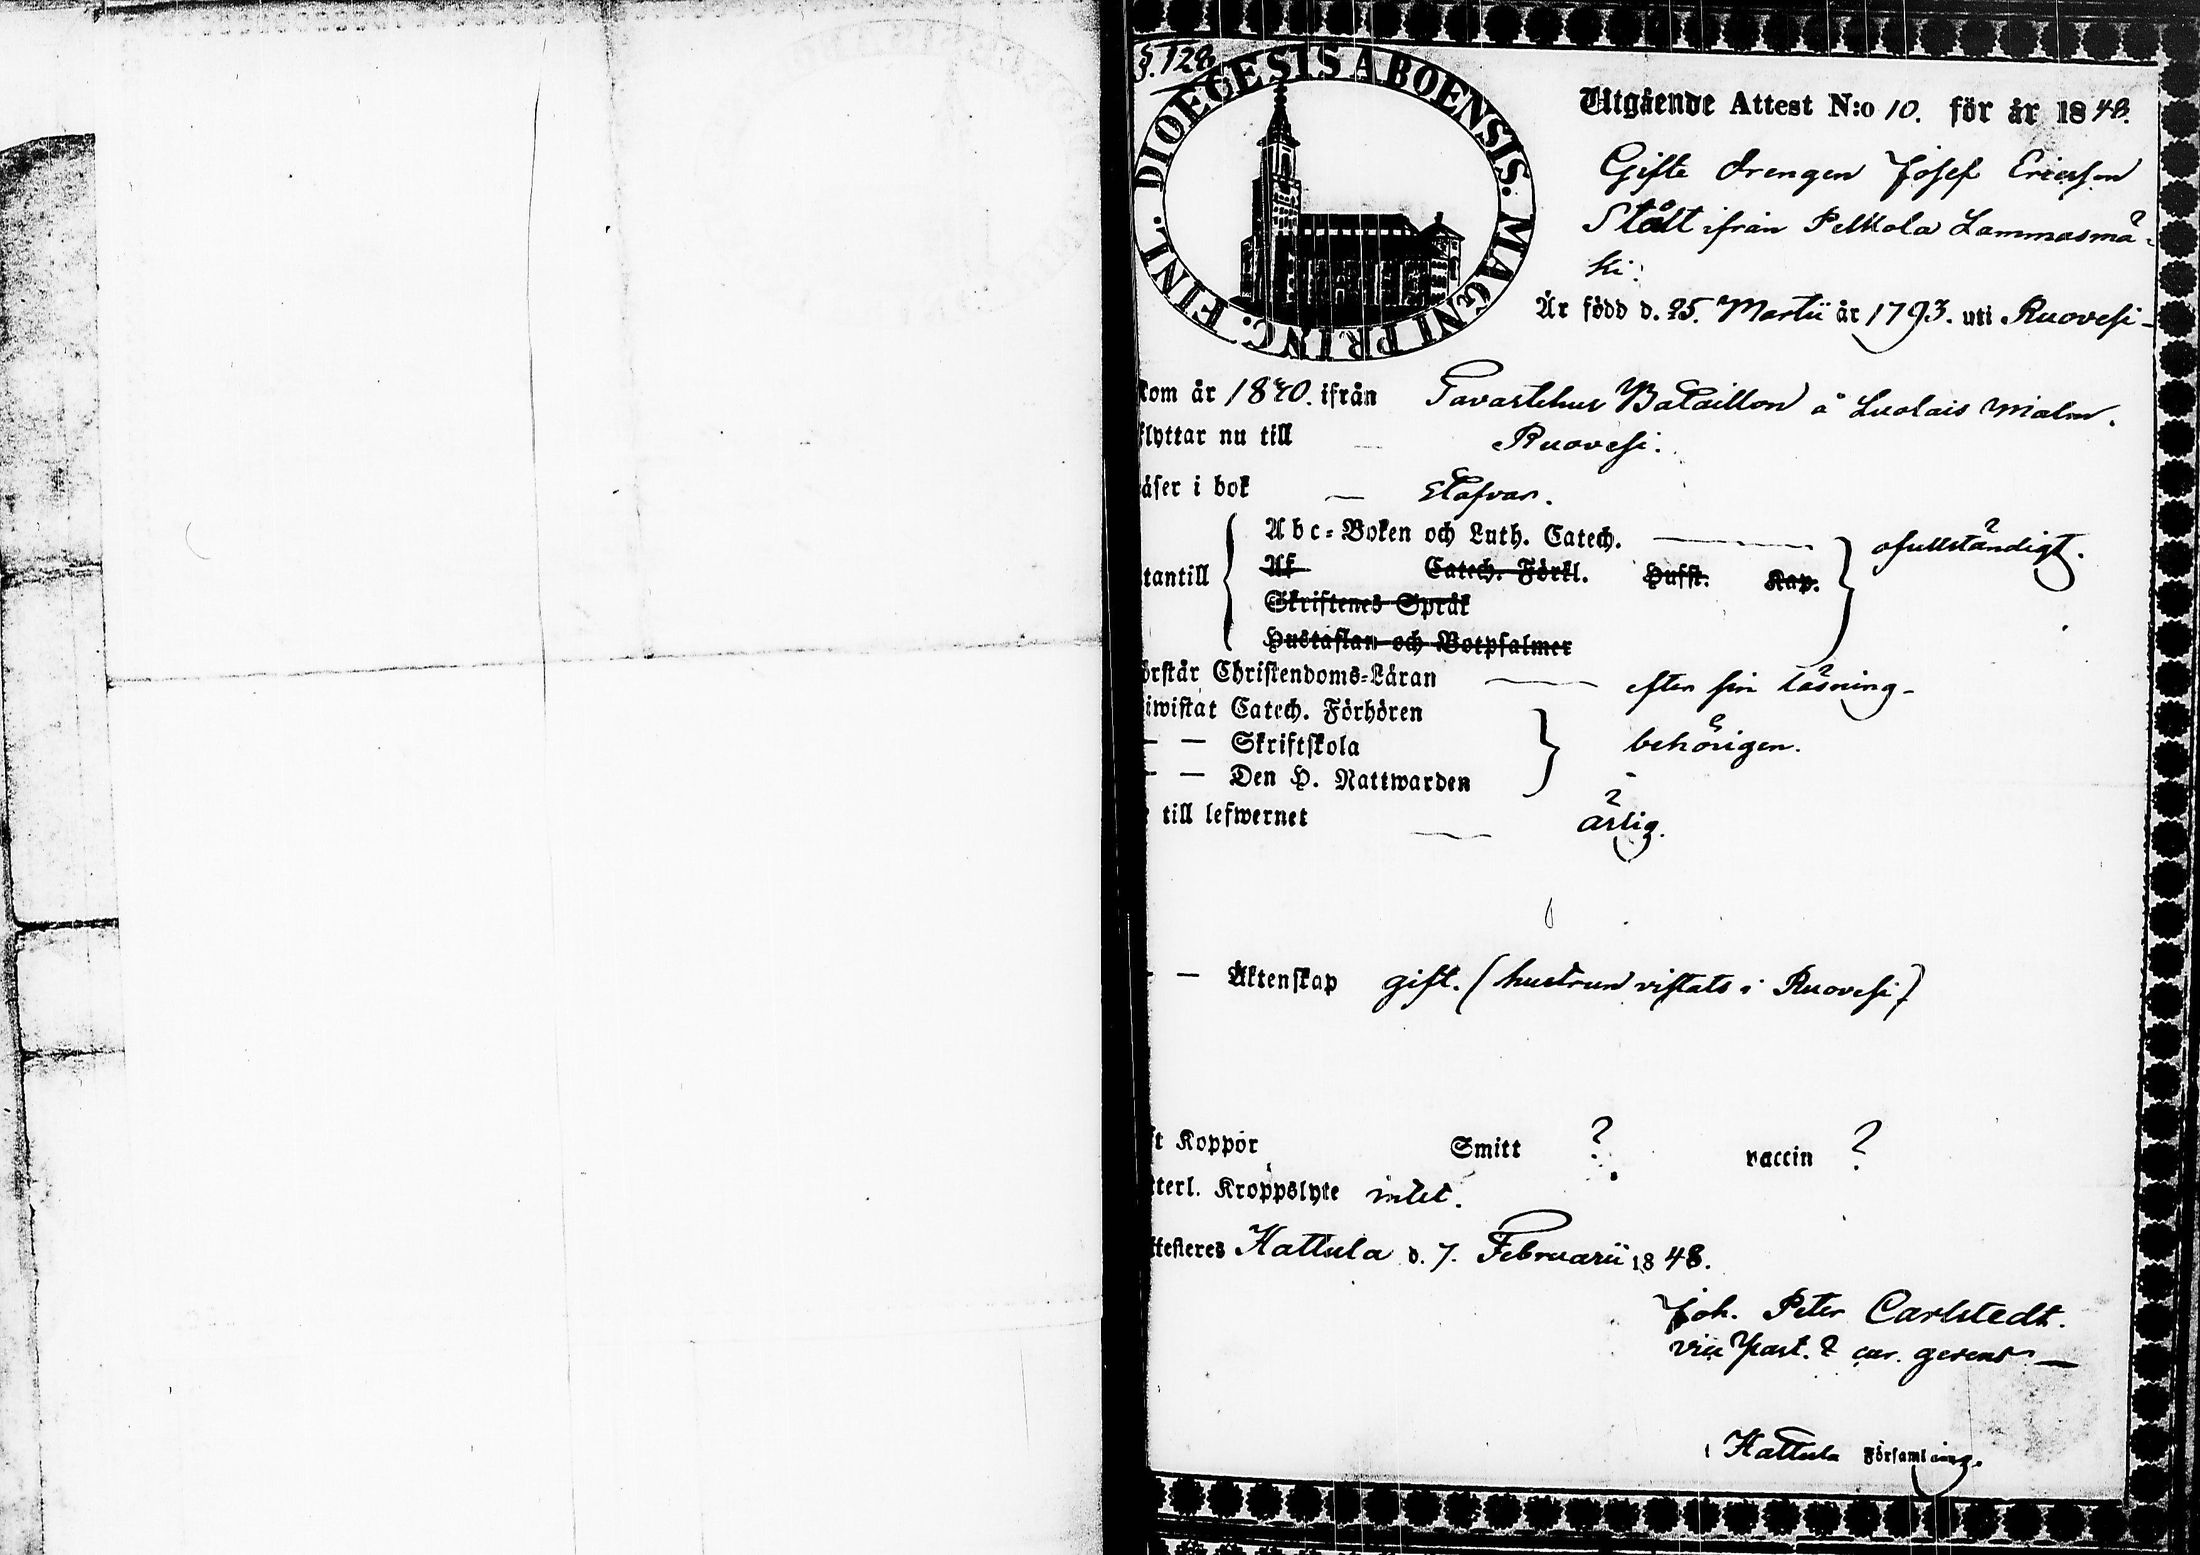 §.128
DIOECESIS ABOENSIS. MAGNI PRINC. FINL.
Utgående Attest N:o 10. för år 1848.
Gifte drengen Josef Ericsson
Stålt ifrån Pelkola Lammasmä-
ki.
Är född d. 25. Martii år 1793. uti Ruovesi
kom år 1840. ifrån Tavastehus Bataillon å Luolais malm.
flyttar nu till — Ruovesi.
äser i bok — stafvar.
Abc-Boken och Luth. Catech. — ofullständigt.
tantill Af Catech. Förkl. Husst. Kap.
Skriftenes Språk
Hustaflan och Botpsalmer
örstår Christendoms-Läran — efter sin läsning
iwistat Catech. Förhören
— — Skriftskola behörigen.
— — Den H. Nattwarden
till lefwernet — ärlig.
— — Äktenskap gift. (hustrun vistats i Ruovesi)
ft Koppor Smitt ? vaccin ?
tterl. Kroppslyte intet.
ttesteres Hattula d. 7. Februarii 1848.
Joh. Peter Carlstedt.
vice Past. & cur. gerens
i Hattula Församling.